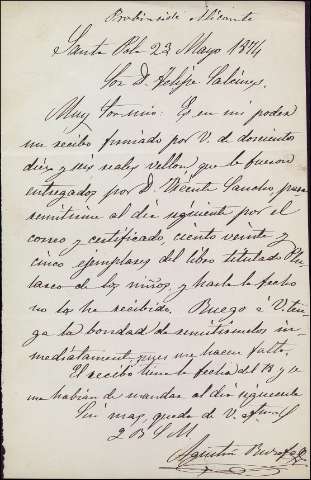 Provincia de Alicante
Santa Pola 23 Mayo 1874
Sor D. Felipe
Muy Sor mio: Es en mi poder
un recibo firmado por V. de doscientos
diez y seis reales vellon, que le fueron
entregados por D. Vicente Sancho, para
remitirme al dia siguiente por el
correo y certificado, ciento veinte y
cinco ejemplares del libro titulado Plu-
tarco de los niños, y hasta la fecha
no los he recibido. Ruego á V. ten-
ga la bondad de remitirmelos in-
mediatamente, pues me hacen falta.
El recibo tiene la fecha del 13 y se
me habian de mandar al dia siguiente
Sin mas, queda de V. afmo S
Q B S M
Agustin